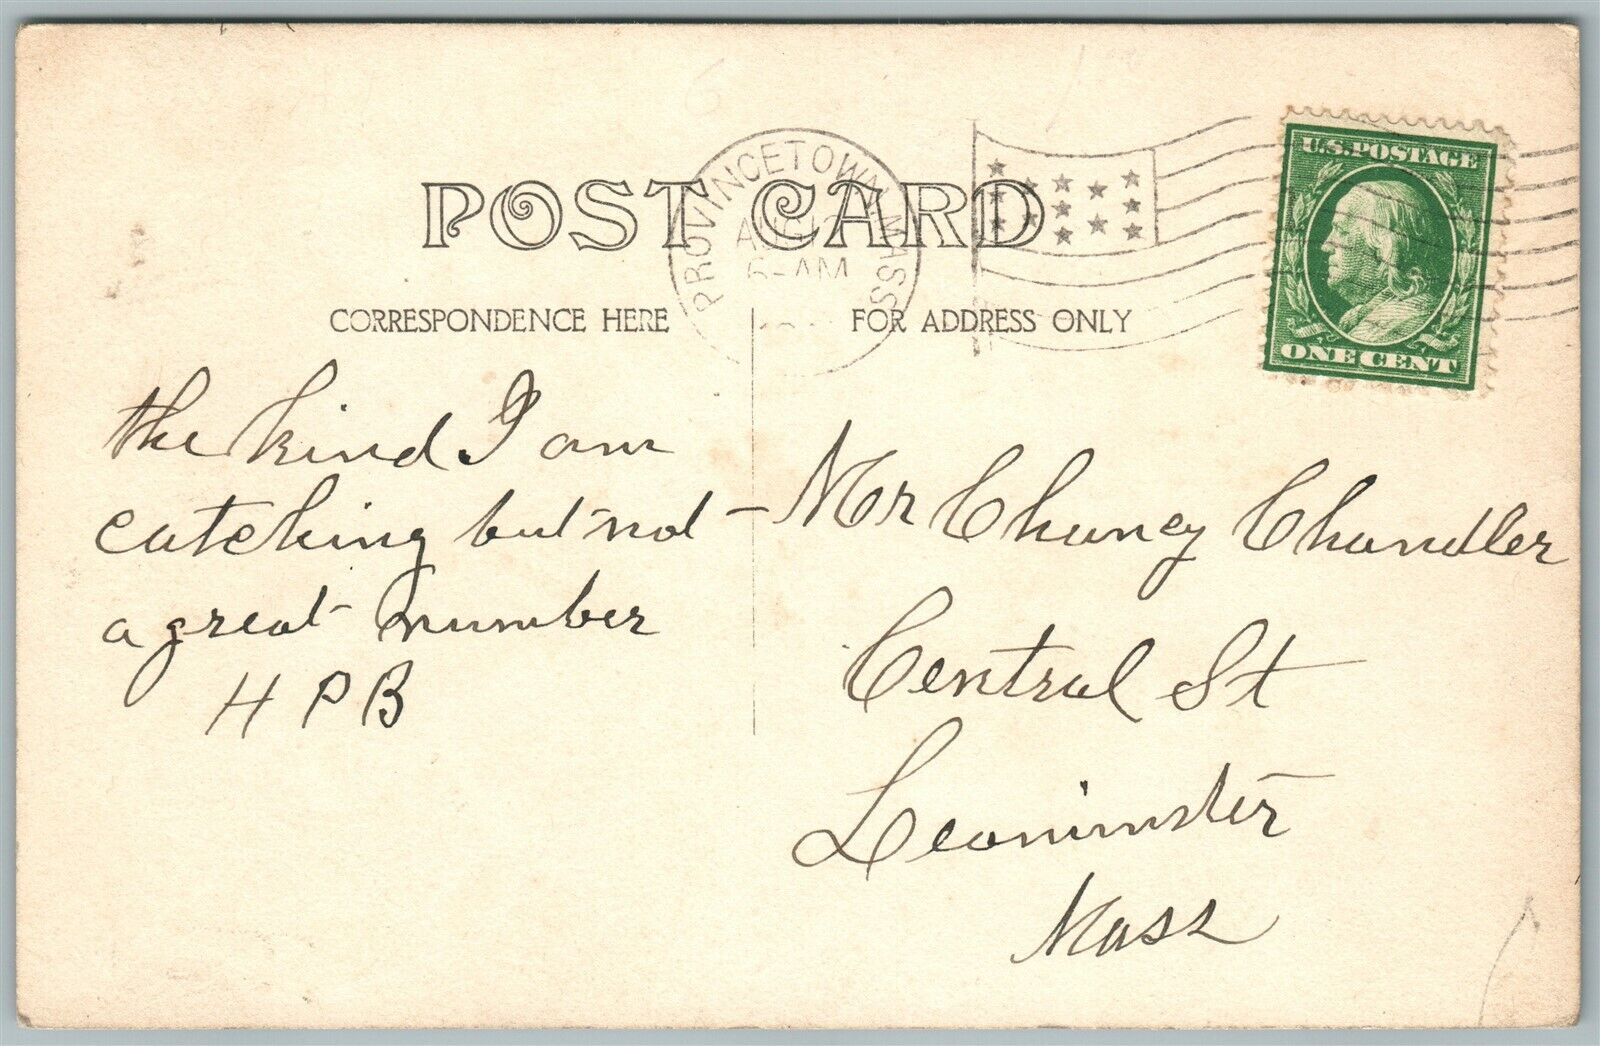 POST CARD
PROVINCETOWN MASS
AUG
6-AM
U.S. POSTAGE
ONE CENT
CORRESPONDENCE HERE
FOR ADDRESS ONLY
the kind I am
catching but not
a great number
H P B
Mr Chaney Chandler
Central St
Leominster
Mass